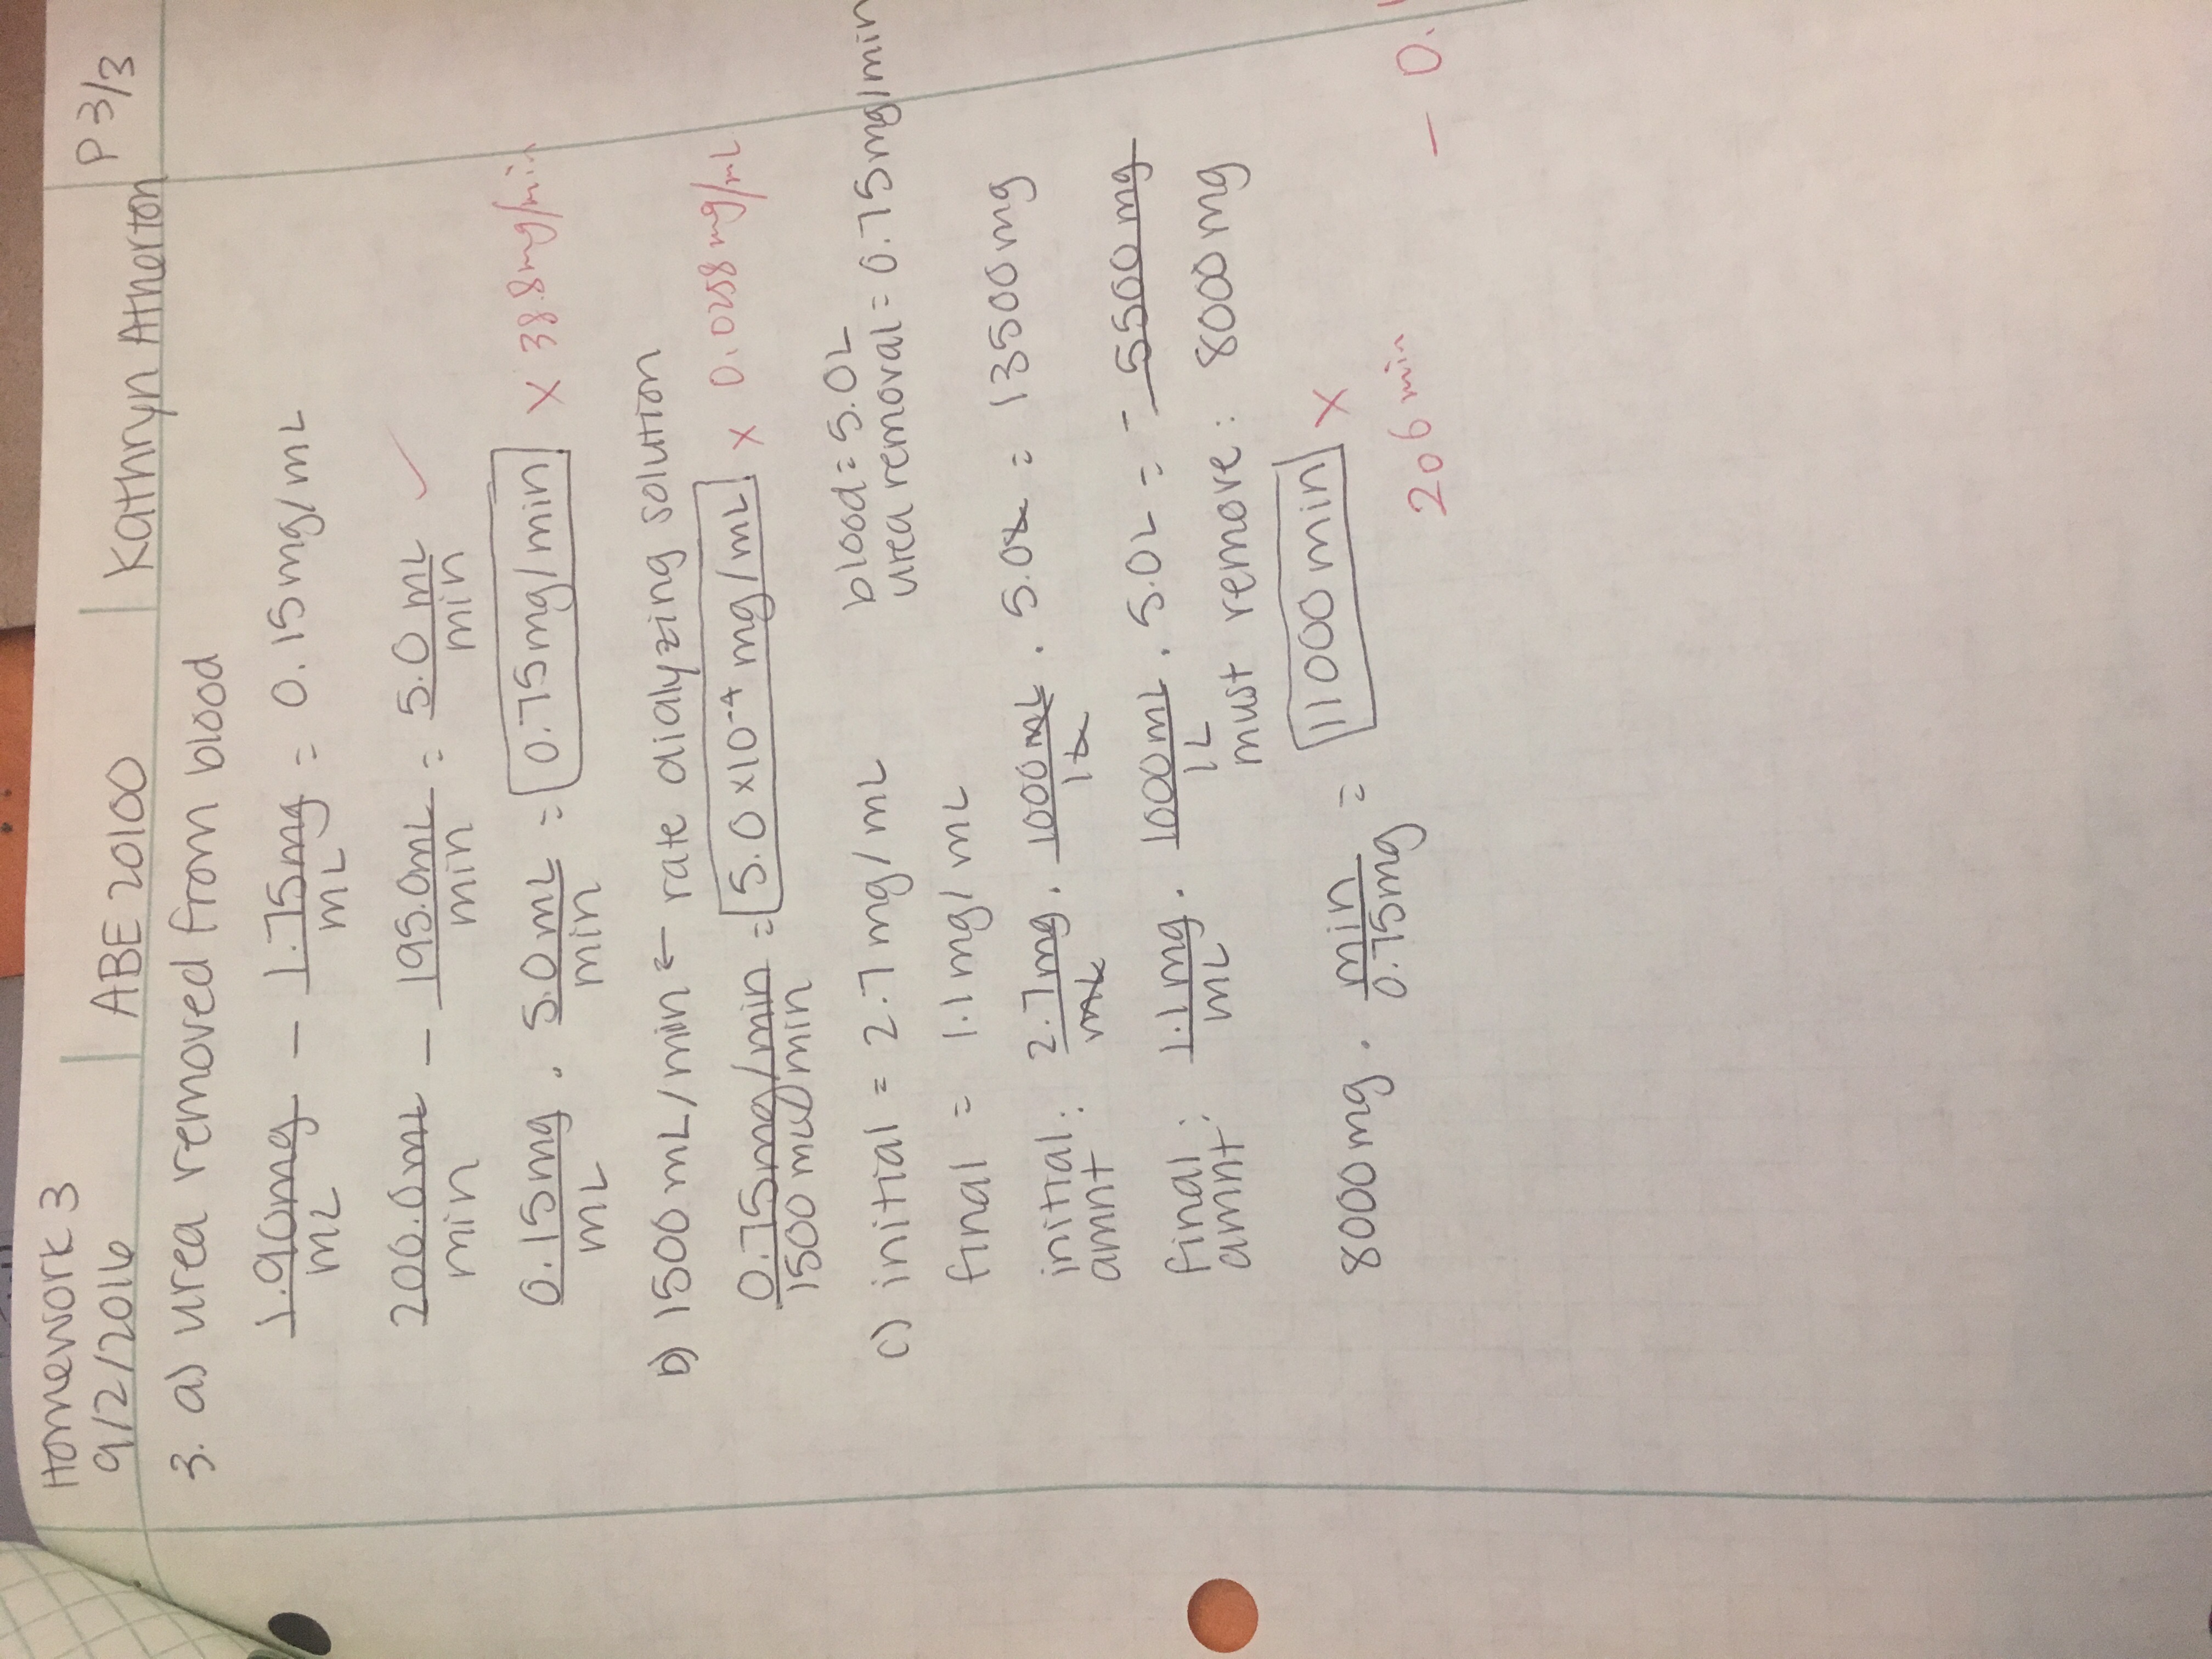 Homework 3
9/2/2016 ABE 20100 Kathryn Atherton P 3/3
3. a) urea removed from blood
1.90mg/mL - 1.75mg/mL = 0.15mg/mL
200.0mL/min - 195.0mL/min = 5.0 mL/min ✓
0.15mg/mL · 5.0mL/min = 0.75mg/min × 38.8mg/min
b) 1500 mL/min ← rate dialyzing solution
0.75mg/min / 1500 mL/min = 5.0 ×10⁻⁴ mg/mL × 0.0258 mg/mL
c) initial = 2.7mg/mL blood = 5.0L
urea removal = 0.75mg/min
final = 1.1mg/mL
initial amnt: 2.7mg/mL · 1000mL/1L · 5.0L = 13500mg
final amnt: 1.1mg/mL · 1000mL/1L · 5.0L = - 5500mg
must remove: 8000mg
8000mg · min/0.75mg = 11000min ×
206 min - 0.